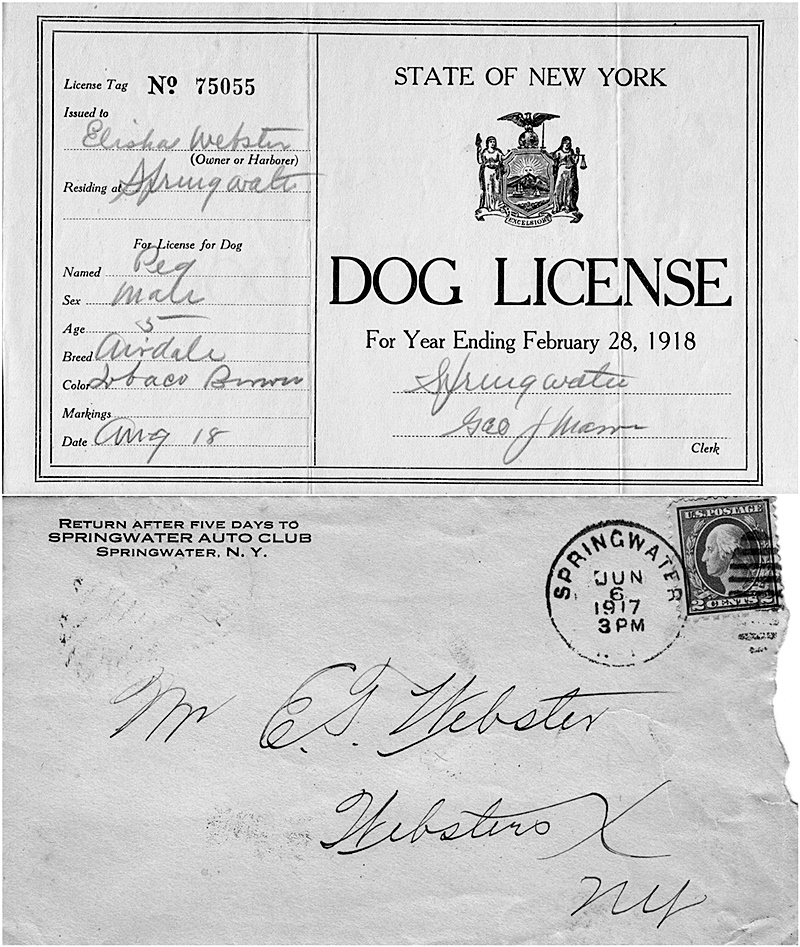 License Tag Nº 75055
Issued to
Elisha Webster
(Owner or Harborer)
Residing at Springwater
For License for Dog
Named Peg
Sex Male
Age 5
Breed Airdale
Color Tobaco Brown
Markings
Date Aug 18
STATE OF NEW YORK
EXCELSIOR
DOG LICENSE
For Year Ending February 28, 1918
Springwater
Geo J
Clerk
RETURN AFTER FIVE DAYS TO
SPRINGWATER AUTO CLUB
SPRINGWATER, N. Y.
SPRINGWATER
JUN
6
1917
3 PM
U.S. POSTAGE
2 CENTS 2
Mr E. T. Webster
Websters X
NY